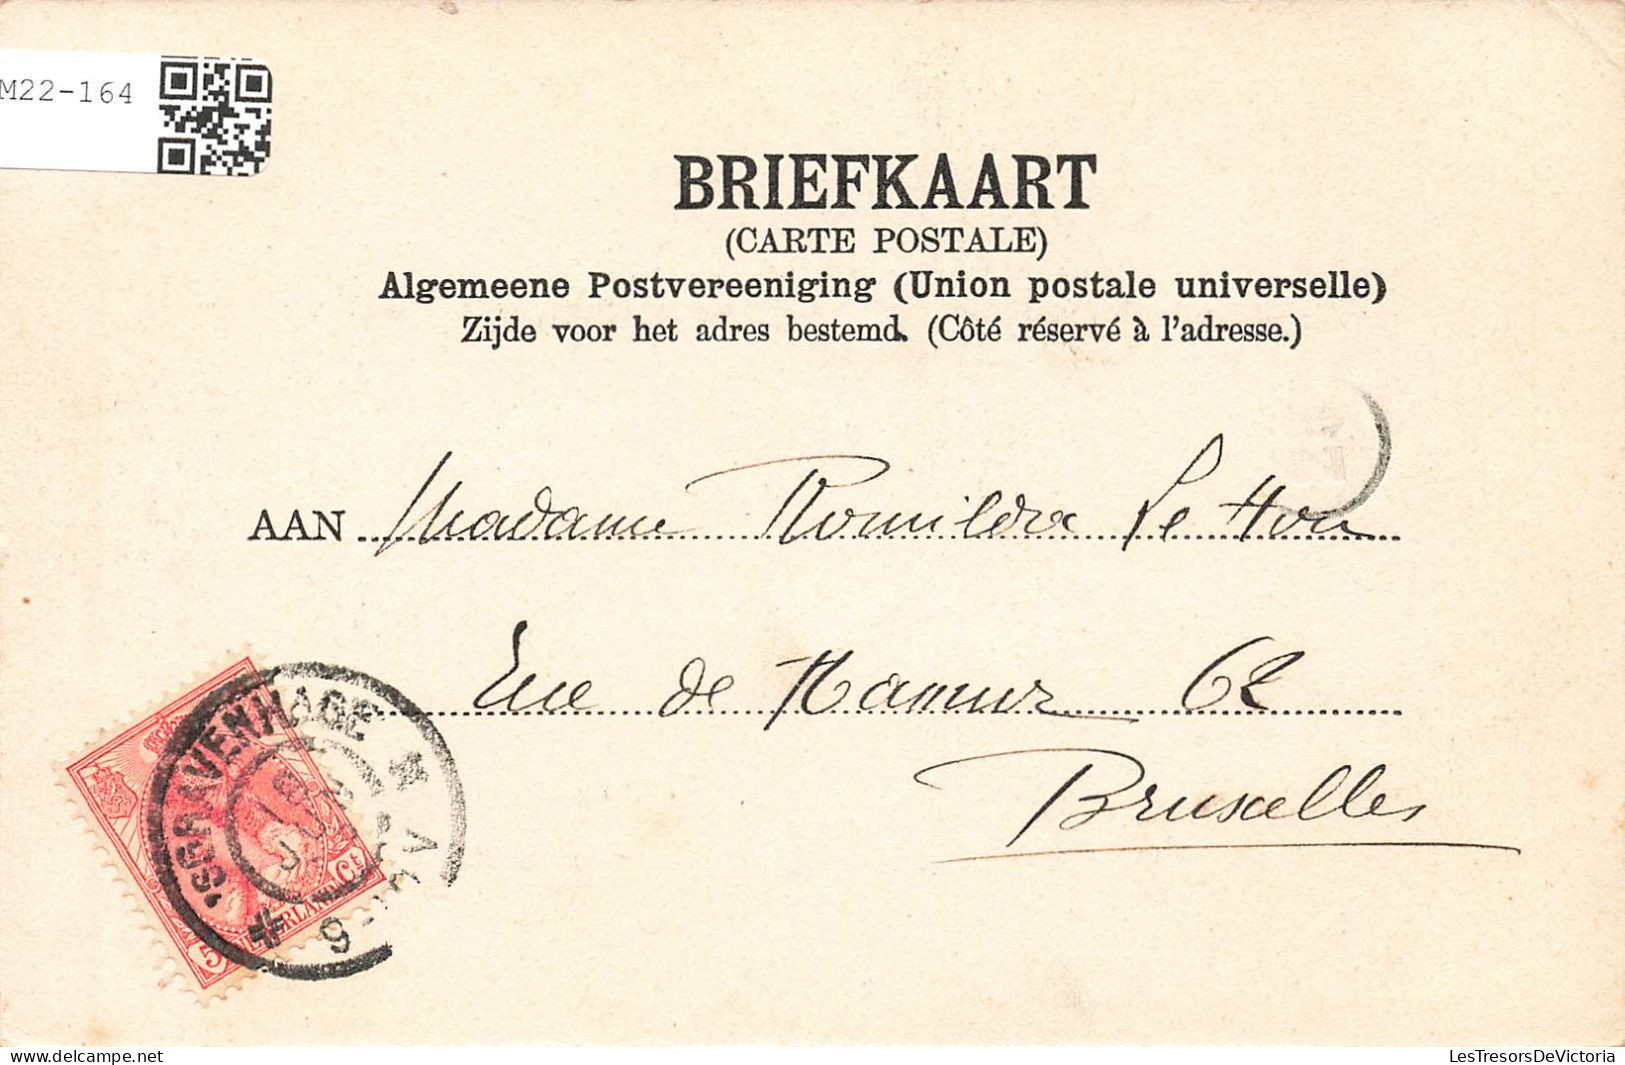 M22-164
BRIEFKAART
(CARTE POSTALE)
Algemeene Postvereeniging (Union postale universelle)
Zijde voor het adres bestemd. (Côté réservé à l'adresse.)
AAN Madame Romilda Le Hon
Rue de Namur 62
Bruxelles
'SGRAVENHAGE
5 NEDERLAND Ct
delcampe.net
LesTresorsDeVictoria